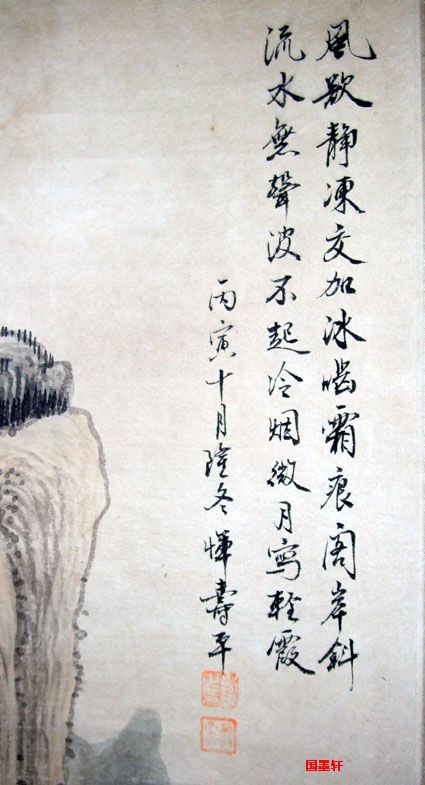 風歇靜凍交加冰喝霜痕閣岸斜
流水無聲波不起冷烟微月寫輕霞
丙寅十月隆冬惲壽平
国墨轩